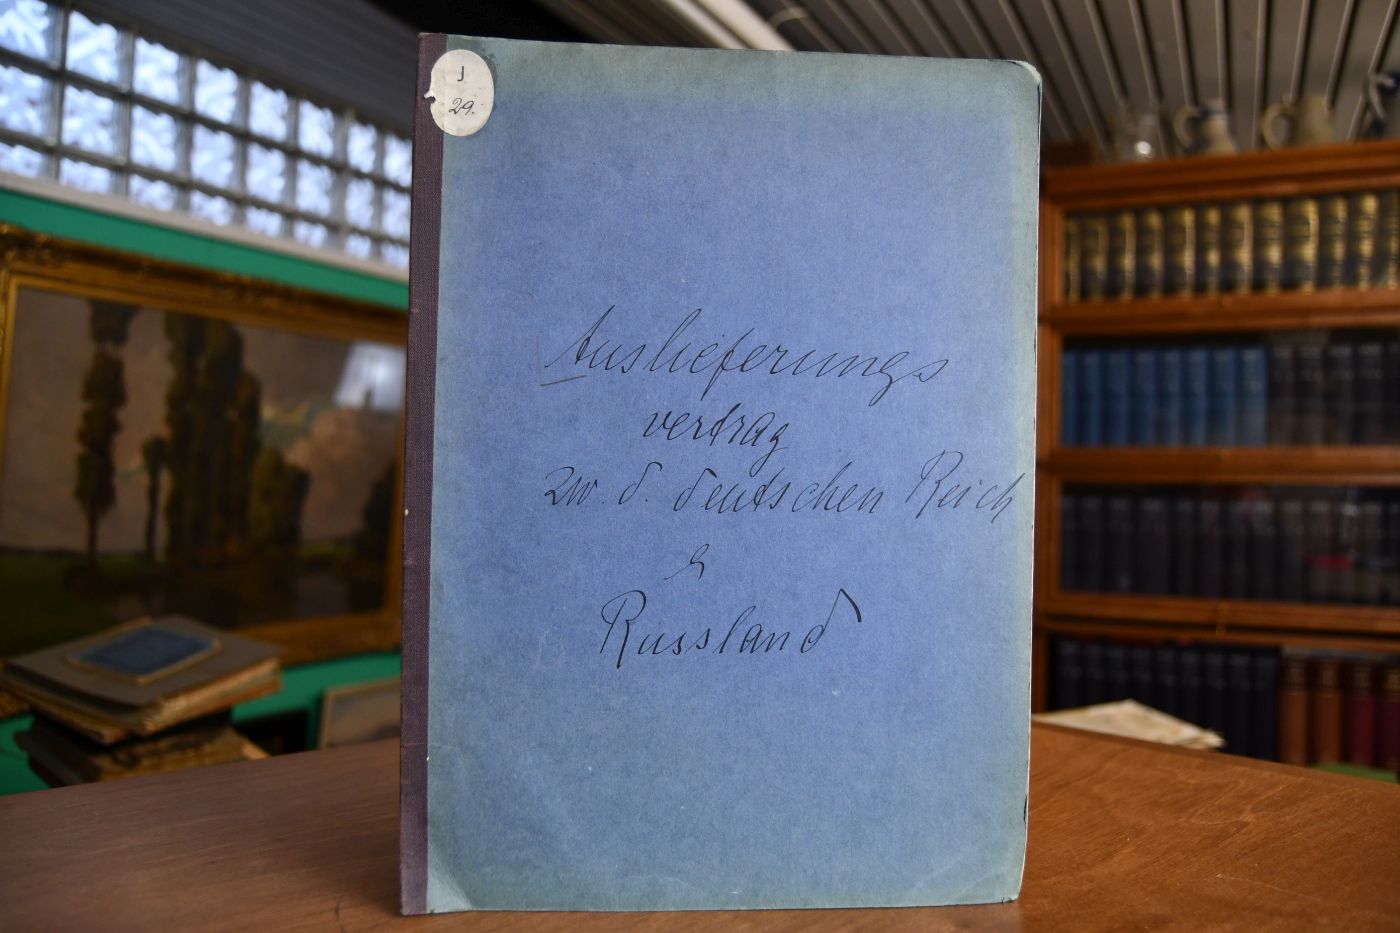 J
29.
Auslieferungs
vertrag
zw. d. deutschen Reich
&
Russland